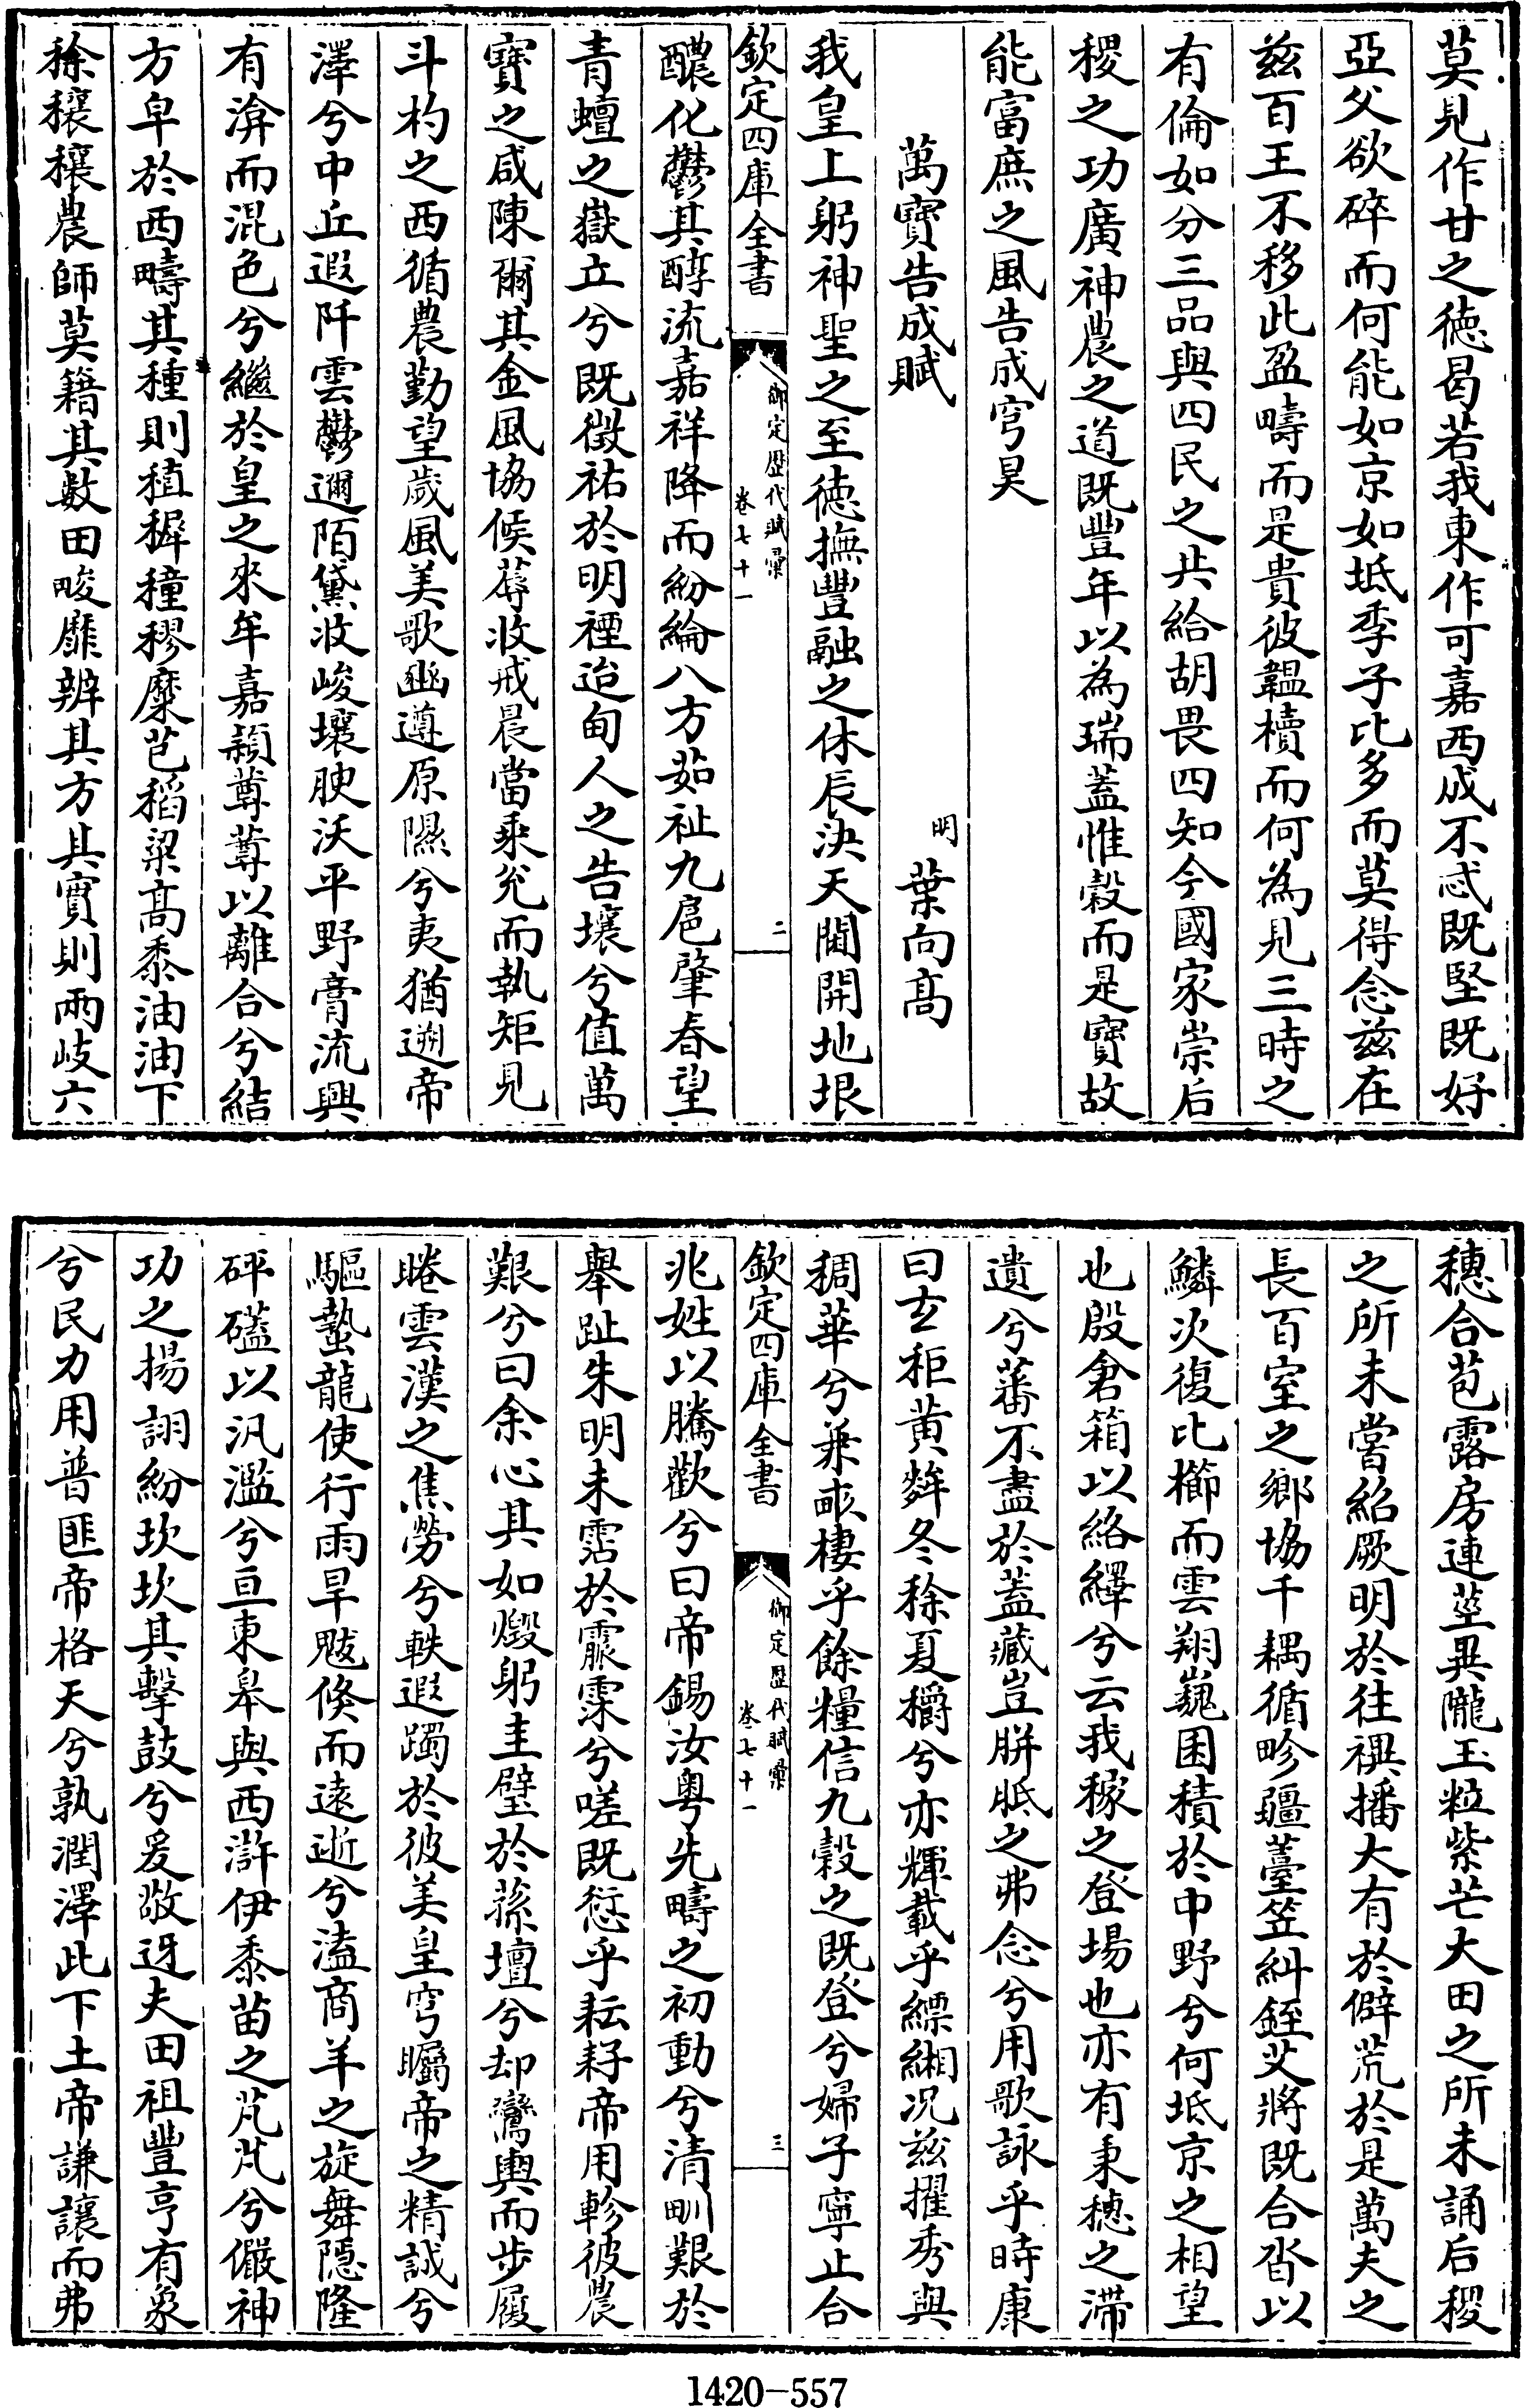 莫見作甘之徳曷若我東作可嘉西成不忒既堅既好
亞父欲碎而何能如京如坻季子比多而莫得念兹在
兹百王不移此盈疇而是貴彼韞櫝而何為見三時之
有倫如分三品與四民之共給胡畏四知今國家崇后
稷之功廣神農之道既豐年以為瑞蓋惟穀而是寳故
能富庶之風告成穹昊
萬寳告成賦
明 葉向髙
我皇上躬神聖之至徳撫豐融之休辰決天閫開地垠
欽定四庫全書
御定歴代賦彙
卷七十一
二
醲化鬱其醇流嘉祥降而紛綸八方茹祉九扈肇春望
青蟺之嶽立兮既徴祐於明禋迨甸人之告壤兮值萬
寳之咸陳爾其金風協候蓐收戒晨當乘兊而執矩見
斗杓之西循農勤望歲風美歌豳遵原隰兮夷猶遡帝
澤兮中丘遐阡雲鬱邇陌黛收峻壤腴沃平野膏流興
有渰而混色兮繼於皇之來牟嘉穎蓴蓴以離合兮結
方皁於西疇其種則稙穉穜穋穈芑稻粱髙黍油油下
稌穰穰農師莫籍其數田畯靡辨其方其實則兩岐六
穗合苞露房連莖異隴玉粒紫芒大田之所未誦后稷
之所未嘗紹厥明於往禩播大有於僻荒於是萬夫之
長百室之鄉協千耦循畛疆薹笠糾銍艾將既合沓以
鱗次復比櫛而雲翔巍囷積於中野兮何坻京之相望
也殷倉箱以絡繹兮云我稼之登場也亦有秉穗之滯
遺兮蕃不盡於蓋藏豈胼胝之弗念兮用歌詠乎時康
曰玄秬黄䴵冬稌夏穱兮亦輝載乎縹緗况兹擢秀與
稠華兮兼畞棲乎餘糧信九穀之既登兮婦子寧止合
欽定四庫全書
御定歴代賦彙
卷七十一
三
兆姓以騰歡兮曰帝錫汝粤先疇之初動兮清甽艱於
舉趾朱明未霑於霢霂兮嗟既愆乎耘耔帝用軫彼農
艱兮曰余心其如燬躬圭璧於蓀壇兮却鸞輿而步履
睠雲漢之焦勞兮軼遐躅於彼美皇穹矚帝之精誠兮
驅蟄龍使行雨旱魃倏而逺逝兮溘商羊之旋舞隱隆
砰礚以汎濫兮亘東臯與西滸伊黍苗之芃芃兮儼神
功之揚詡紛坎坎其擊鼓兮爰敬迓夫田祖豐亨有象
兮民力用普匪帝格天兮孰潤澤此下土帝謙讓而弗
1420-557